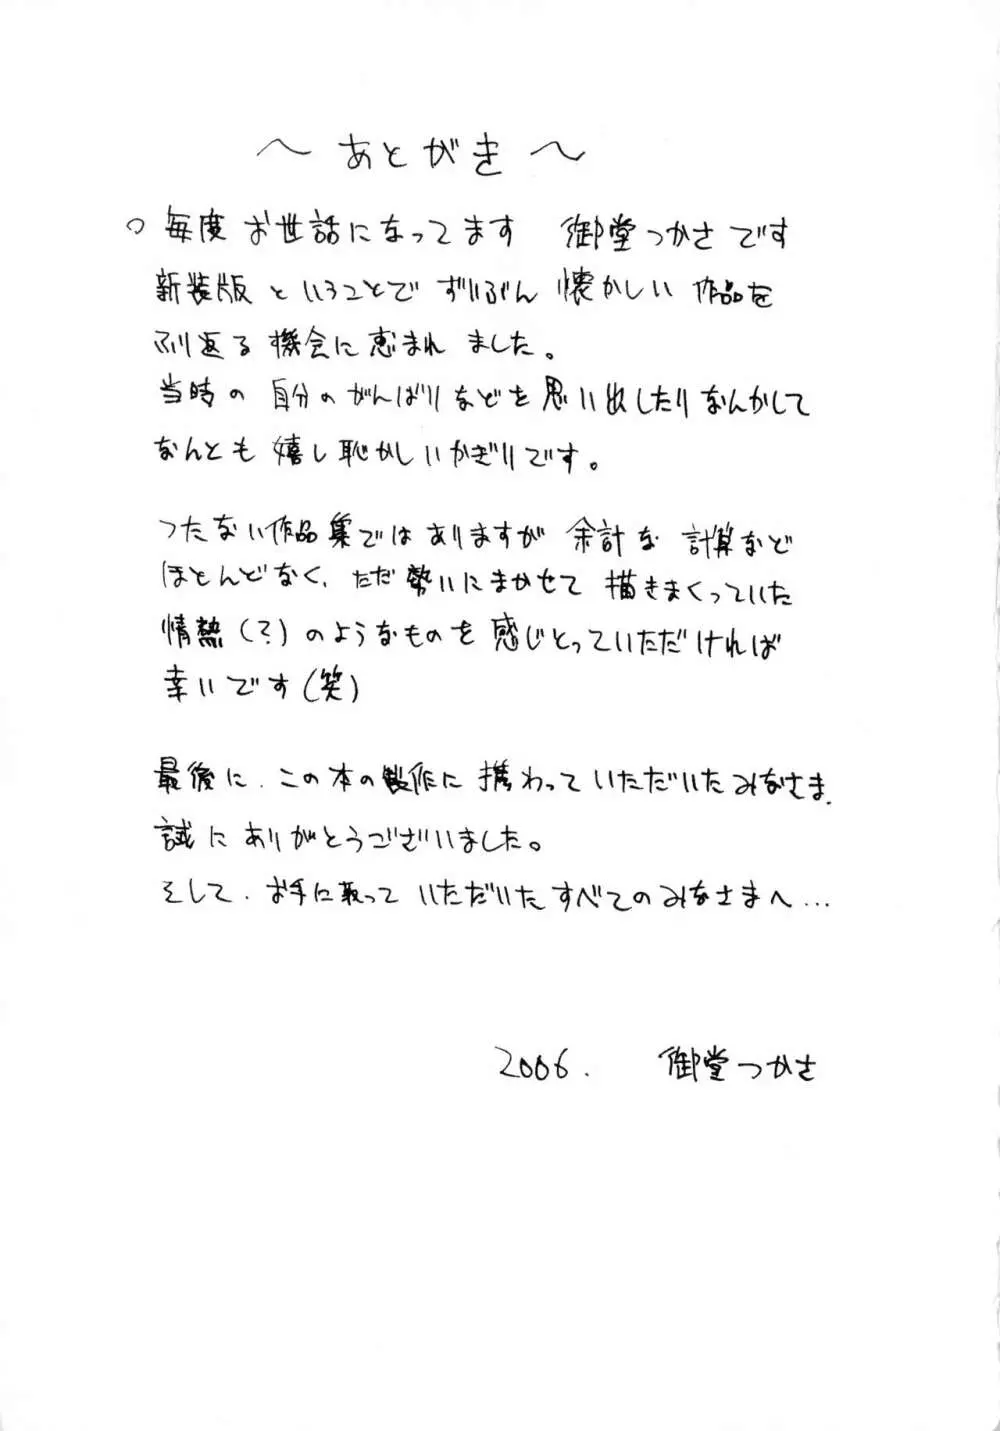 ～あとがき～
○毎度お世話になってます 御堂つかさです
新装版ということでずいぶん懐かしい作品を
ふり返る機会に恵まれました。
当時の自分のがんばりなどを思い出したりなんかして
なんとも嬉し恥かしいかぎりです。
つたない作品集ではありますが余計な計算など
ほとんどなく、ただ勢いにまかせて描きまくっていた
情熱(？)のようなものを感じとっていただければ
幸いです(笑)
最後に、この本の製作に携わっていただいたみなさま、
誠にありがとうございました。
そして、お手に取っていただいたすべてのみなさまへ…
2006. 御堂つかさ